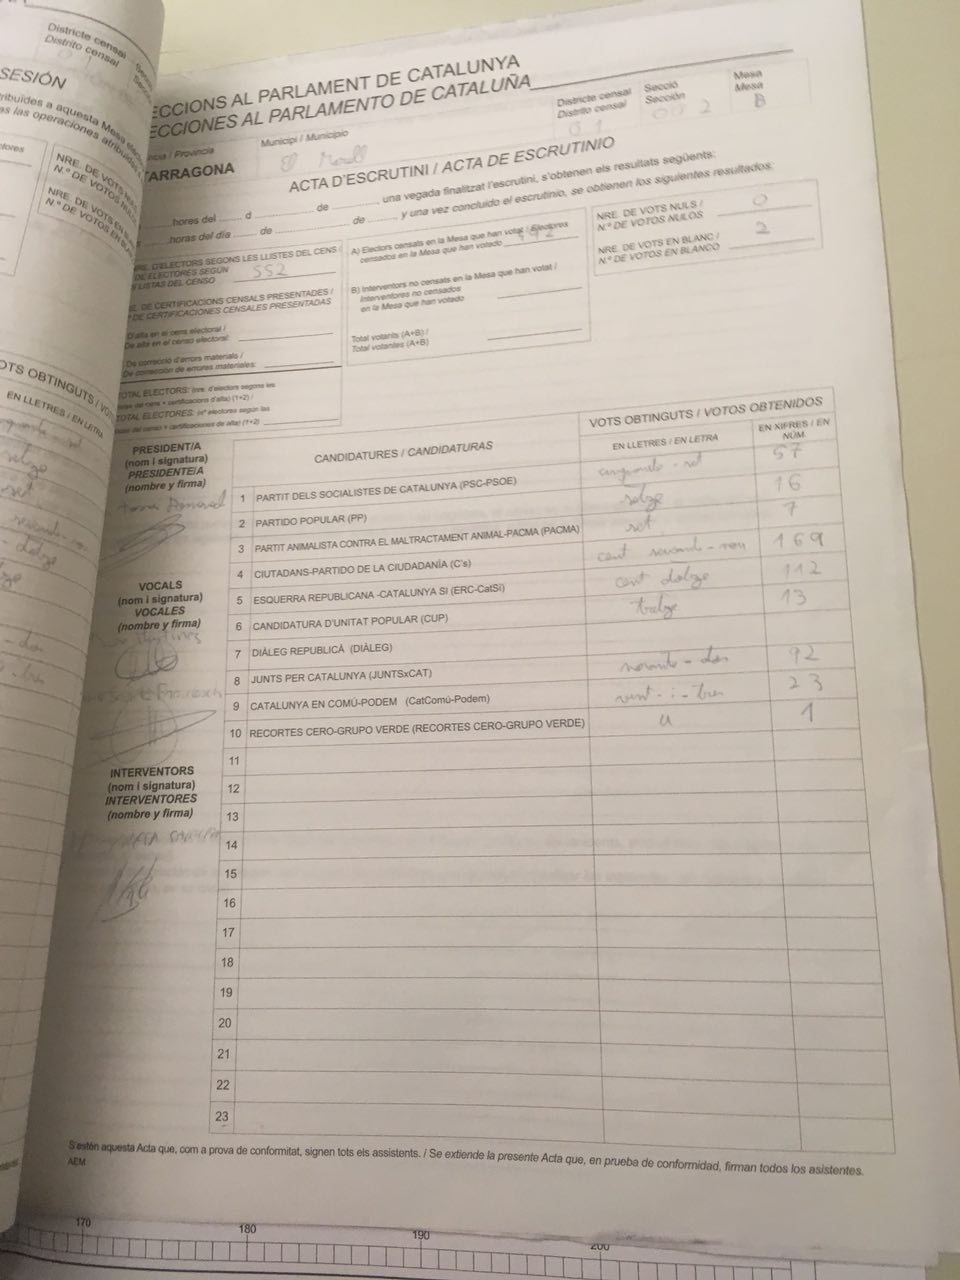 Districte censal
Distrito censal
SESIÓN
ECCIONS AL PARLAMENT DE CATALUNYA
ECCIONES AL PARLAMENTO DE CATALUÑA
Municipi / Municipio
El Morell
Districte censal
Distrito censal
01
Secció
Sección
002
Mesa
Mesa
B
TARRAGONA
ACTA D'ESCRUTINI / ACTA DE ESCRUTINIO
hores del ........ d ........ de ........, una vegada finalitzat l'escrutini, s'obtenen els resultats següents:
horas del día ........ de ........ de ........ y una vez concluido el escrutinio, se obtienen los siguientes resultados:
NRE. D'ELECTORS SEGONS LES LLISTES DEL CENS /
DE ELECTORES SEGÚN
LISTAS DEL CENSO
552
DE CERTIFICACIONS CENSALS PRESENTADES /
DE CERTIFICACIONES CENSALES PRESENTADAS
D'alta en el cens electoral /
De alta en el censo electoral:
De correcció d'errors materials /
De corrección de errores materiales:
TOTAL ELECTORS: (nre. d'electors segons les
llistes del cens + certificacions d'alta) (1+2) /
TOTAL ELECTORES: (nº electores según las
listas del censo + certificaciones de alta) (1+2)
A) Electors censats en la Mesa que han votat / Electores
censados en la Mesa que han votado 492
B) Interventors no censats en la Mesa que han votat /
Interventores no censados
en la Mesa que han votado
Total votants (A+B) /
Total votantes (A+B)
NRE. DE VOTS NULS /
N.º DE VOTOS NULOS
0
NRE. DE VOTS EN BLANC /
N.º DE VOTOS EN BLANCO
2
PRESIDENT/A
(nom i signatura)
PRESIDENTE/A
(nombre y firma)
VOCALS
(nom i signatura)
VOCALES
(nombre y firma)
INTERVENTORS
(nom i signatura)
INTERVENTORES
(nombre y firma)
CANDIDATURES / CANDIDATURAS
VOTS OBTINGUTS / VOTOS OBTENIDOS
EN LLETRES / EN LETRA
EN XIFRES / EN NÚM.
1 PARTIT DELS SOCIALISTES DE CATALUNYA (PSC-PSOE) cinquanta-set 57
2 PARTIDO POPULAR (PP) setze 16
3 PARTIT ANIMALISTA CONTRA EL MALTRACTAMENT ANIMAL-PACMA (PACMA) set 7
4 CIUTADANS-PARTIDO DE LA CIUDADANÍA (C's) cent seixanta-nou 169
5 ESQUERRA REPUBLICANA -CATALUNYA SI (ERC-CatSí) cent dotze 112
6 CANDIDATURA D'UNITAT POPULAR (CUP) tretze 13
7 DIÀLEG REPUBLICÀ (DIÀLEG)
8 JUNTS PER CATALUNYA (JUNTSxCAT) noranta-dos 92
9 CATALUNYA EN COMÚ-PODEM (CatComú-Podem) vint-i-tres 23
10 RECORTES CERO-GRUPO VERDE (RECORTES CERO-GRUPO VERDE) u 1
11
12
13
14
15
16
17
18
19
20
21
22
23
S'estén aquesta Acta que, com a prova de conformitat, signen tots els assistents. / Se extiende la presente Acta que, en prueba de conformidad, firman todos los asistentes.
AEM
170
180
190
200